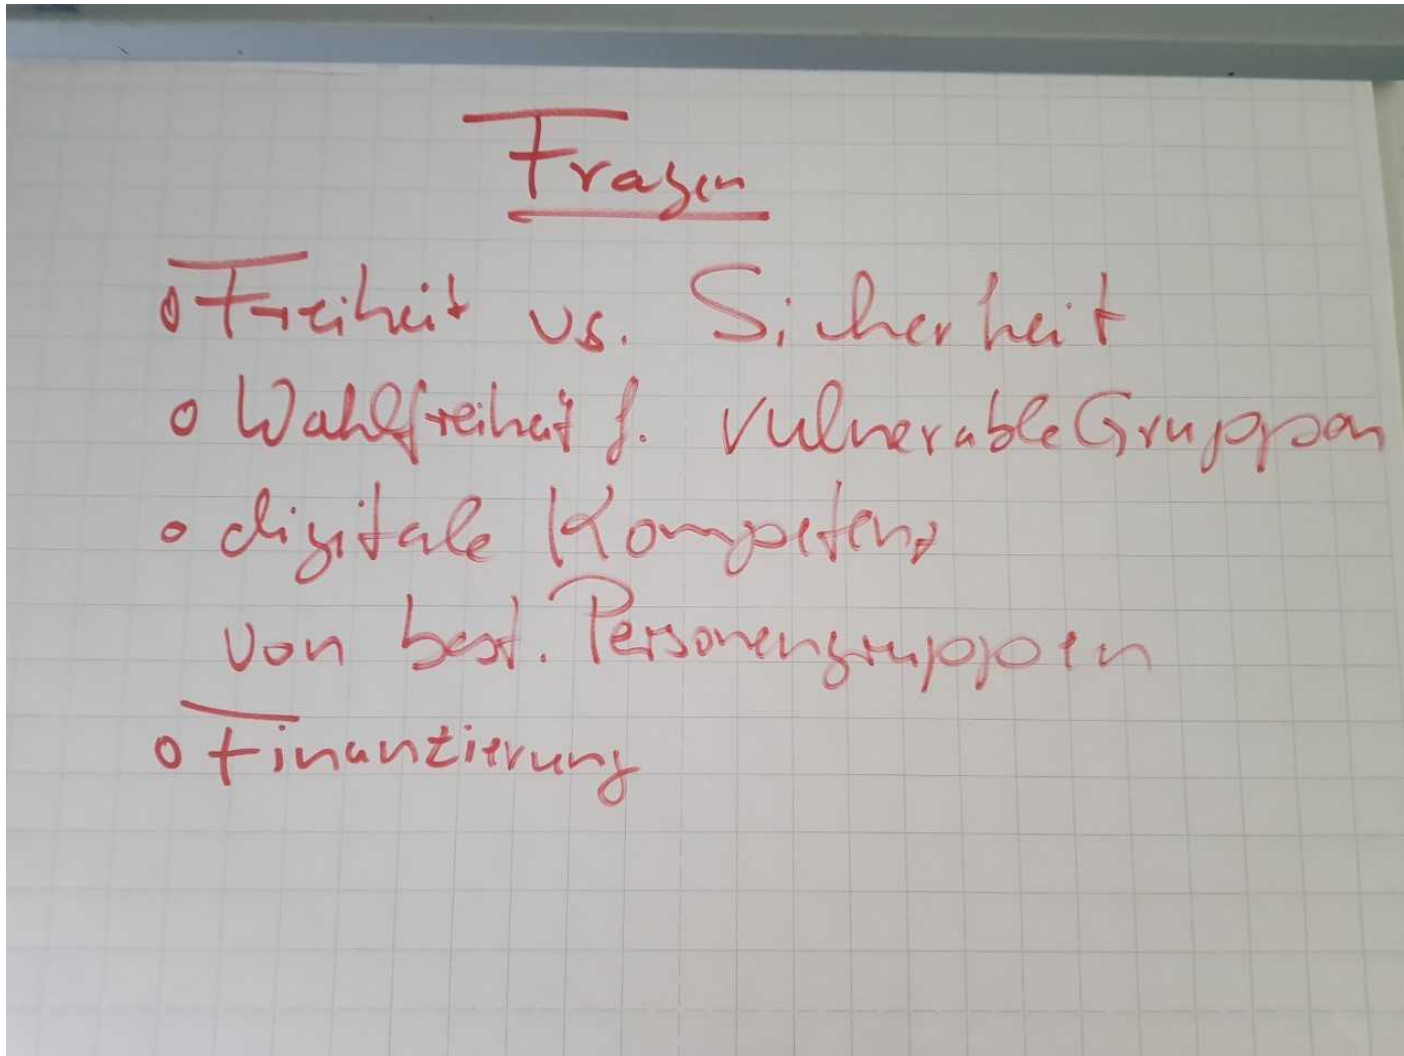 Fragen
o Freiheit vs. Sicherheit
o Wahlfreiheit f. vulnerable Gruppen
o digitale Kompetenz
von best. Personengruppen
o Finanzierung